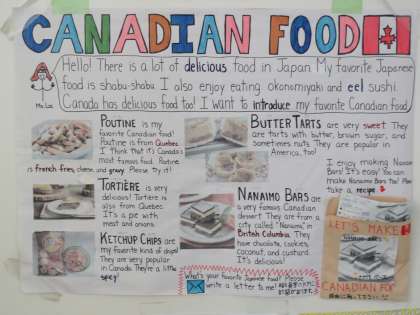 CANADIAN FOOD
Hello! There is a lot of delicious food in Japan. My favorite Japanese
food is shabu-shabu. I also enjoy eating okonomiyaki and eel sushi.
Canada has delicious food too! I want to introduce my favorite Canadian food.
POUTINE is my
favorite Canadian food!
Poutine is from Quebec.
I think that it's Canada's
most famous food. Poutine
is french fries, cheese, and gravy. Please try it!
BUTTER TARTS are very sweet! They
are tarts with butter, brown sugar, and
sometimes nuts. They are popular in
America, too!
TORTIÈRE is very
delicious! Tortière is
also from Quebec.
It's a pie with
meat and onions.
NANAIMO BARS are
a very famous Canadian
dessert. They are from a
city called "Nanaimo," in
British Columbia. They
have chocolate, cookies,
coconut, and custard.
It's delicious!
I enjoy making Nanaimo
Bars! It's easy! You can
make Nanaimo Bars too! Please
take a recipe
KETCHUP CHIPS are
my favorite kind of chips!
They are very popular
in Canada. They're a little
spicy!
What's your favorite Japanese food? Please
write a letter to me!
LET'S MAKE
CANADIAN FOOD